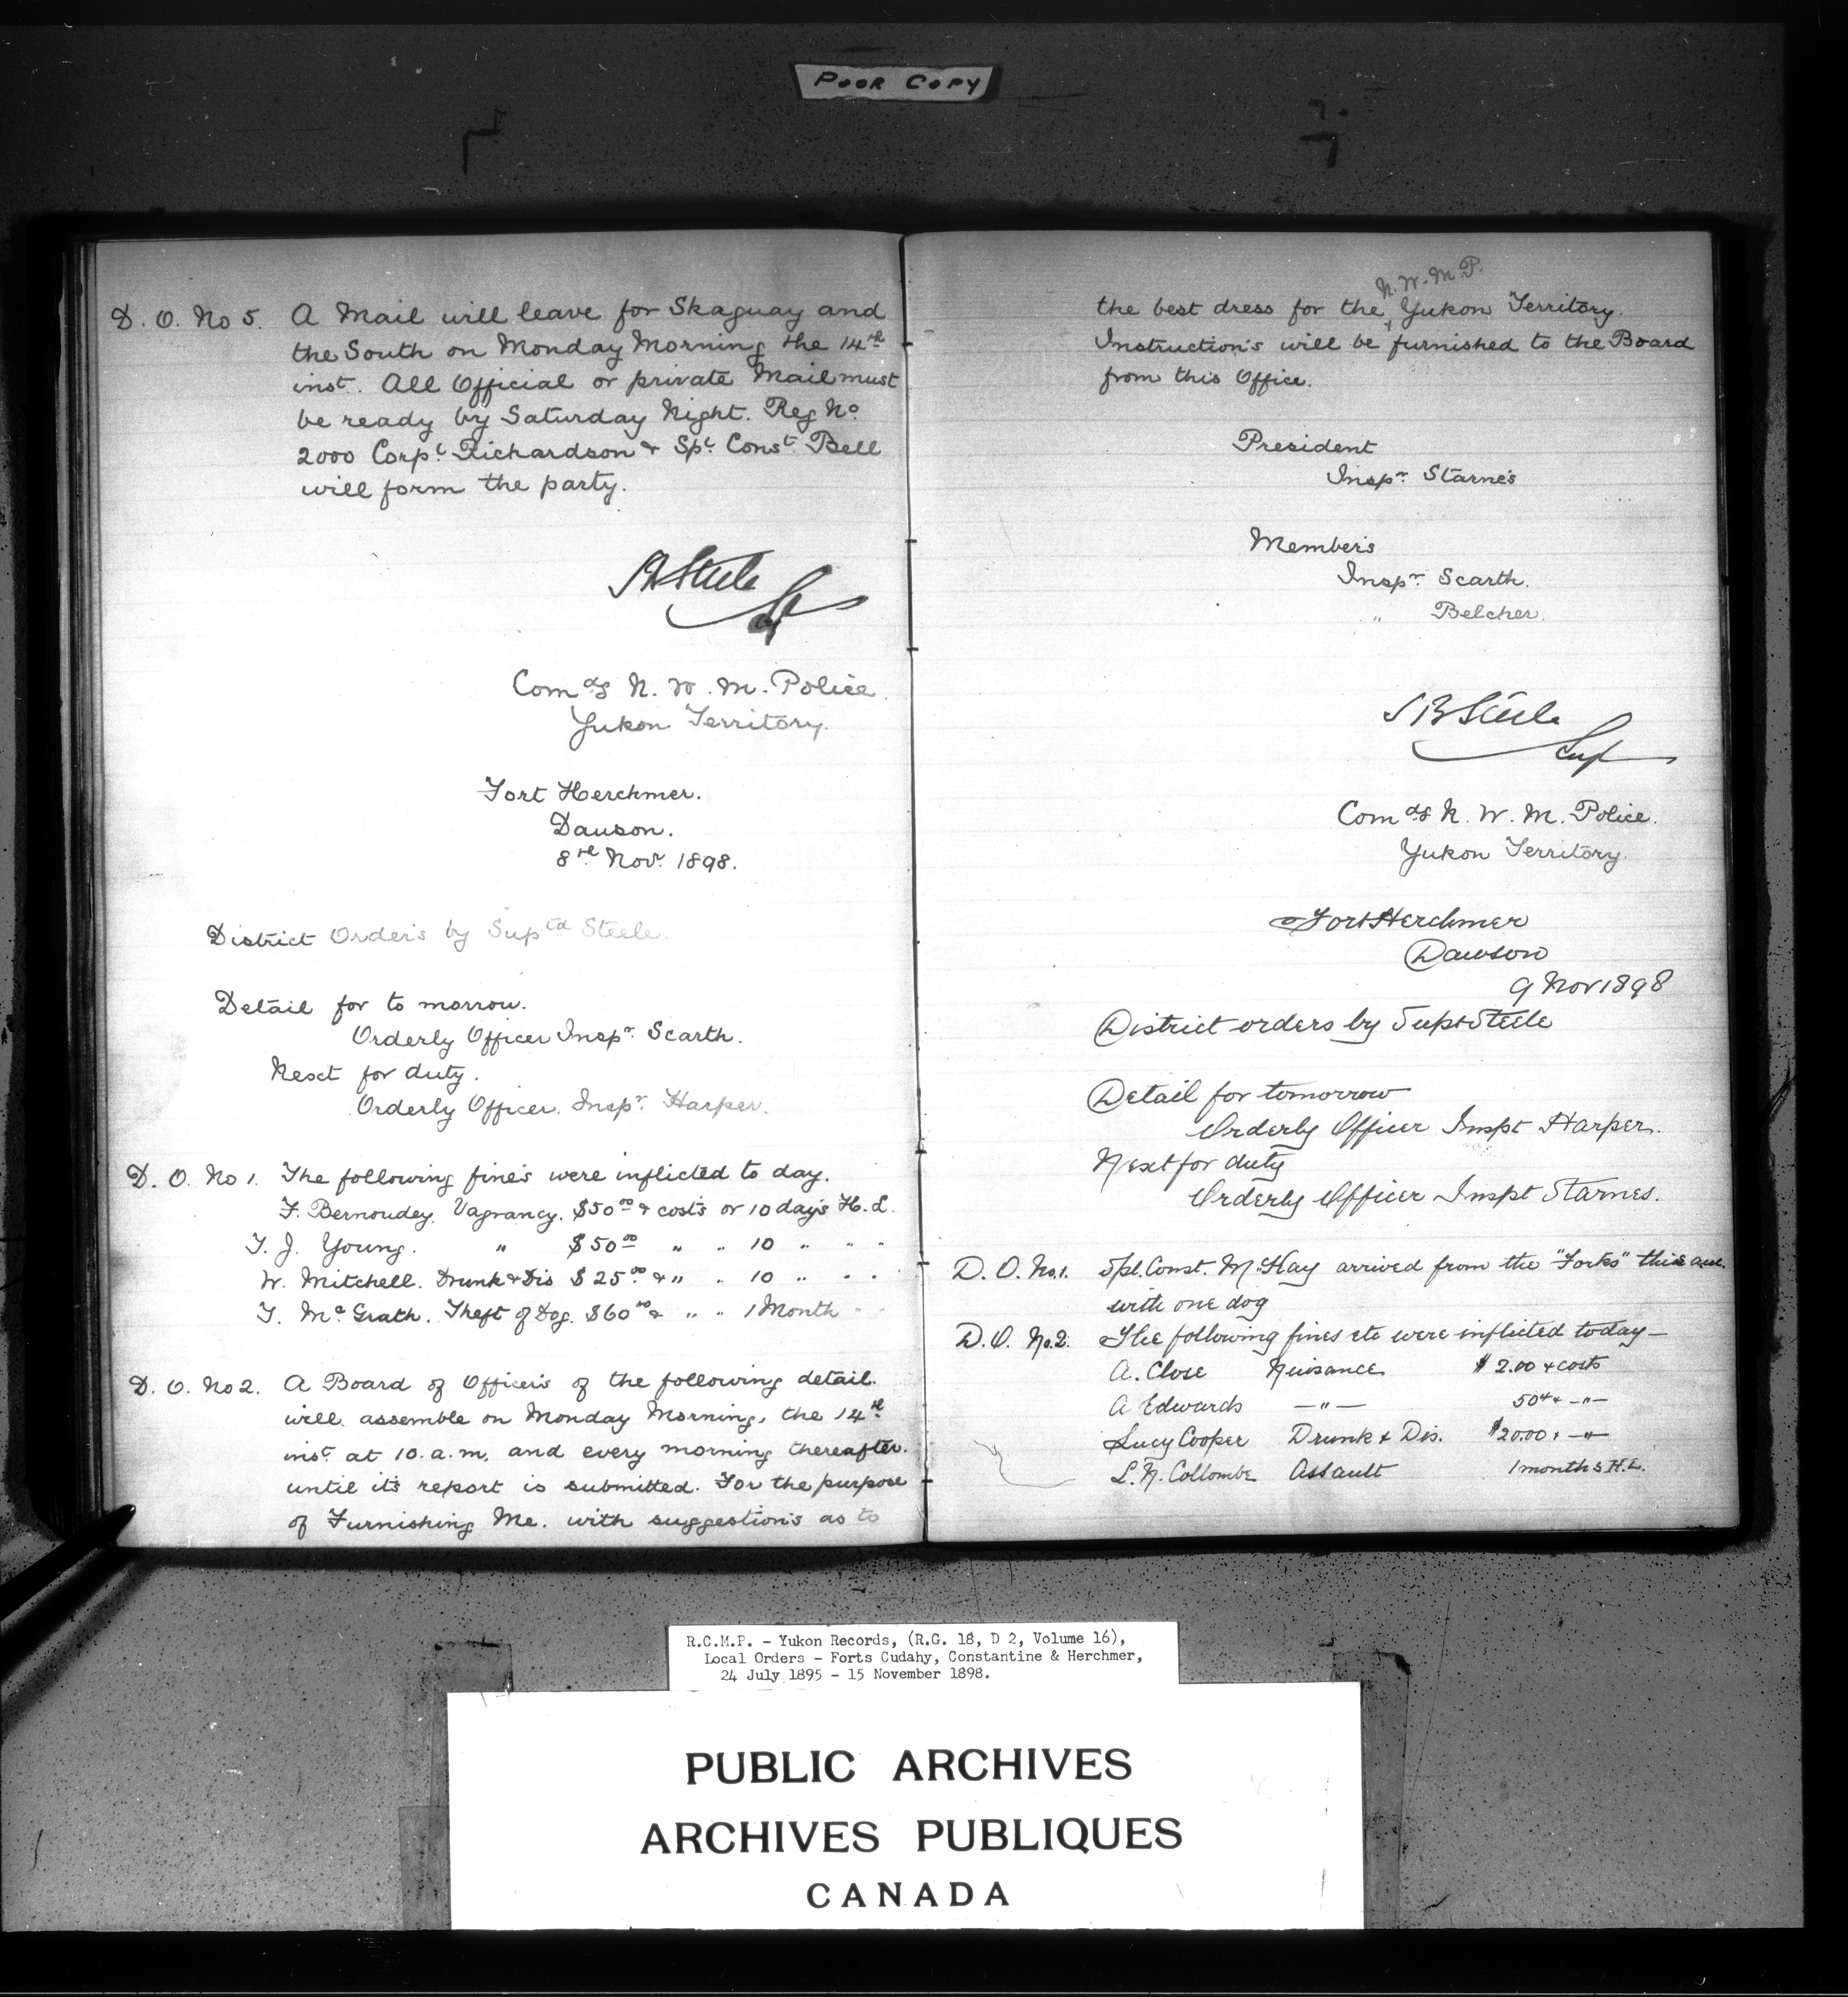 POOR COPY
D. O. No 5. A Mail will leave for Skaguay and
the South on Monday Morning the 14th
inst. All Official or private Mail must
be ready by Saturday Night. Reg No
2000 Corpl Richardson & Spl Const. Bell
will form the party.
SBSteele
Supt
Comdg N. W. M. Police.
Yukon Territory.
Fort Herchmer.
Dawson.
8th Nov. 1898.
District Order's by Suptd Steele.
Detail for to morrow.
Orderly Officer Inspr. Scarth.
Next for duty.
Orderly Officer. Inspr. Harper.
D. O. No 1. The following fine's were inflicted to day.
F. Bernoudey. Vagrancy. $50.00 & cost's or 10 day's H. L.
T. J. Young. " $50.00 " " 10 " " "
W. Mitchell. Drunk & Dis $25.00 & " " 10 " " "
T. Mc Grath. Theft of Dog. $60.00 & " " 1 Month " "
D. O. No 2. A Board of Officer's of the following detail.
will assemble on Monday Morning, the 14th
inst at 10. a.m. and every morning thereafter.
until it's report is submitted. For the purpose
of Furnishing Me. with suggestion's as to
N. W. M. P.
the best dress for the Yukon Territory.
Instruction's will be furnished to the Board
from this Office.
President
Inspr. Starne's
Member's
Inspr. Scarth.
" Belcher.
SBSteele
Supt
Comdg N. W. M. Police.
Yukon Territory.
Fort Herchmer
Dawson
9 Nov 1898
District orders by Supt Steele
Detail for tomorrow
Orderly Officer Inspt Harper.
Next for duty
Orderly Officer Inspt Starnes.
D. O. No. 1. Spl. Const. McKay arrived from the "Forks" this a.m.
with one dog
D. O. No. 2. The following fines etc were inflicted today —
A. Close Nuisance $ 2.00 & costs
A Edwards — " — 50¢ & — " —
Lucy Cooper Drunk & Dis. $20.00 & — " —
L. N. Collombe Assault 1 months H. L.
R.C.M.P. - Yukon Records, (R.G. 18, D 2, Volume 16),
Local Orders - Forts Cudahy, Constantine & Herchmer,
24 July 1895 - 15 November 1898.
PUBLIC ARCHIVES
ARCHIVES PUBLIQUES
CANADA